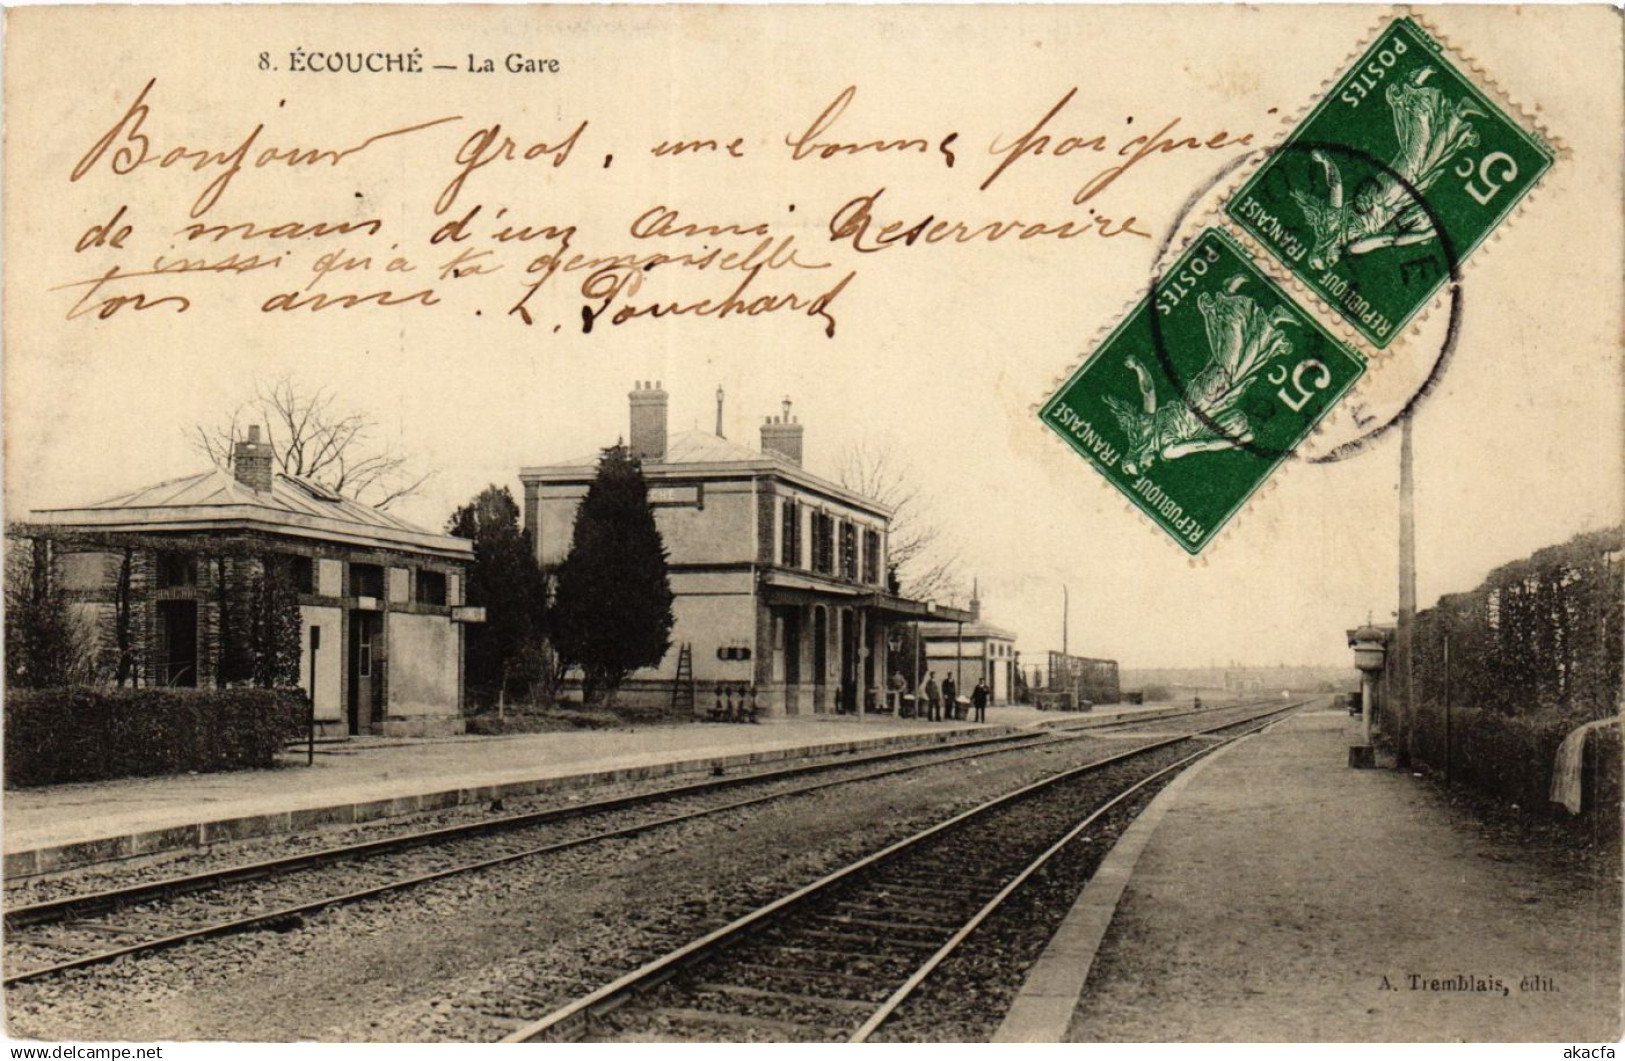 8. ÉCOUCHÉ — La Gare
Bonjour gros, une bonne poignei
de main d'un Ami Reservoire
inssi qu'a ta demoiselle
ton ami. L. Pouchard
POSTES
5c
REPUBLIQUE FRANÇAISE
POSTES
5c
REPUBLIQUE FRANÇAISE
OUCHE
A. Tremblais, édit.
www.delcampe.net
akacfa